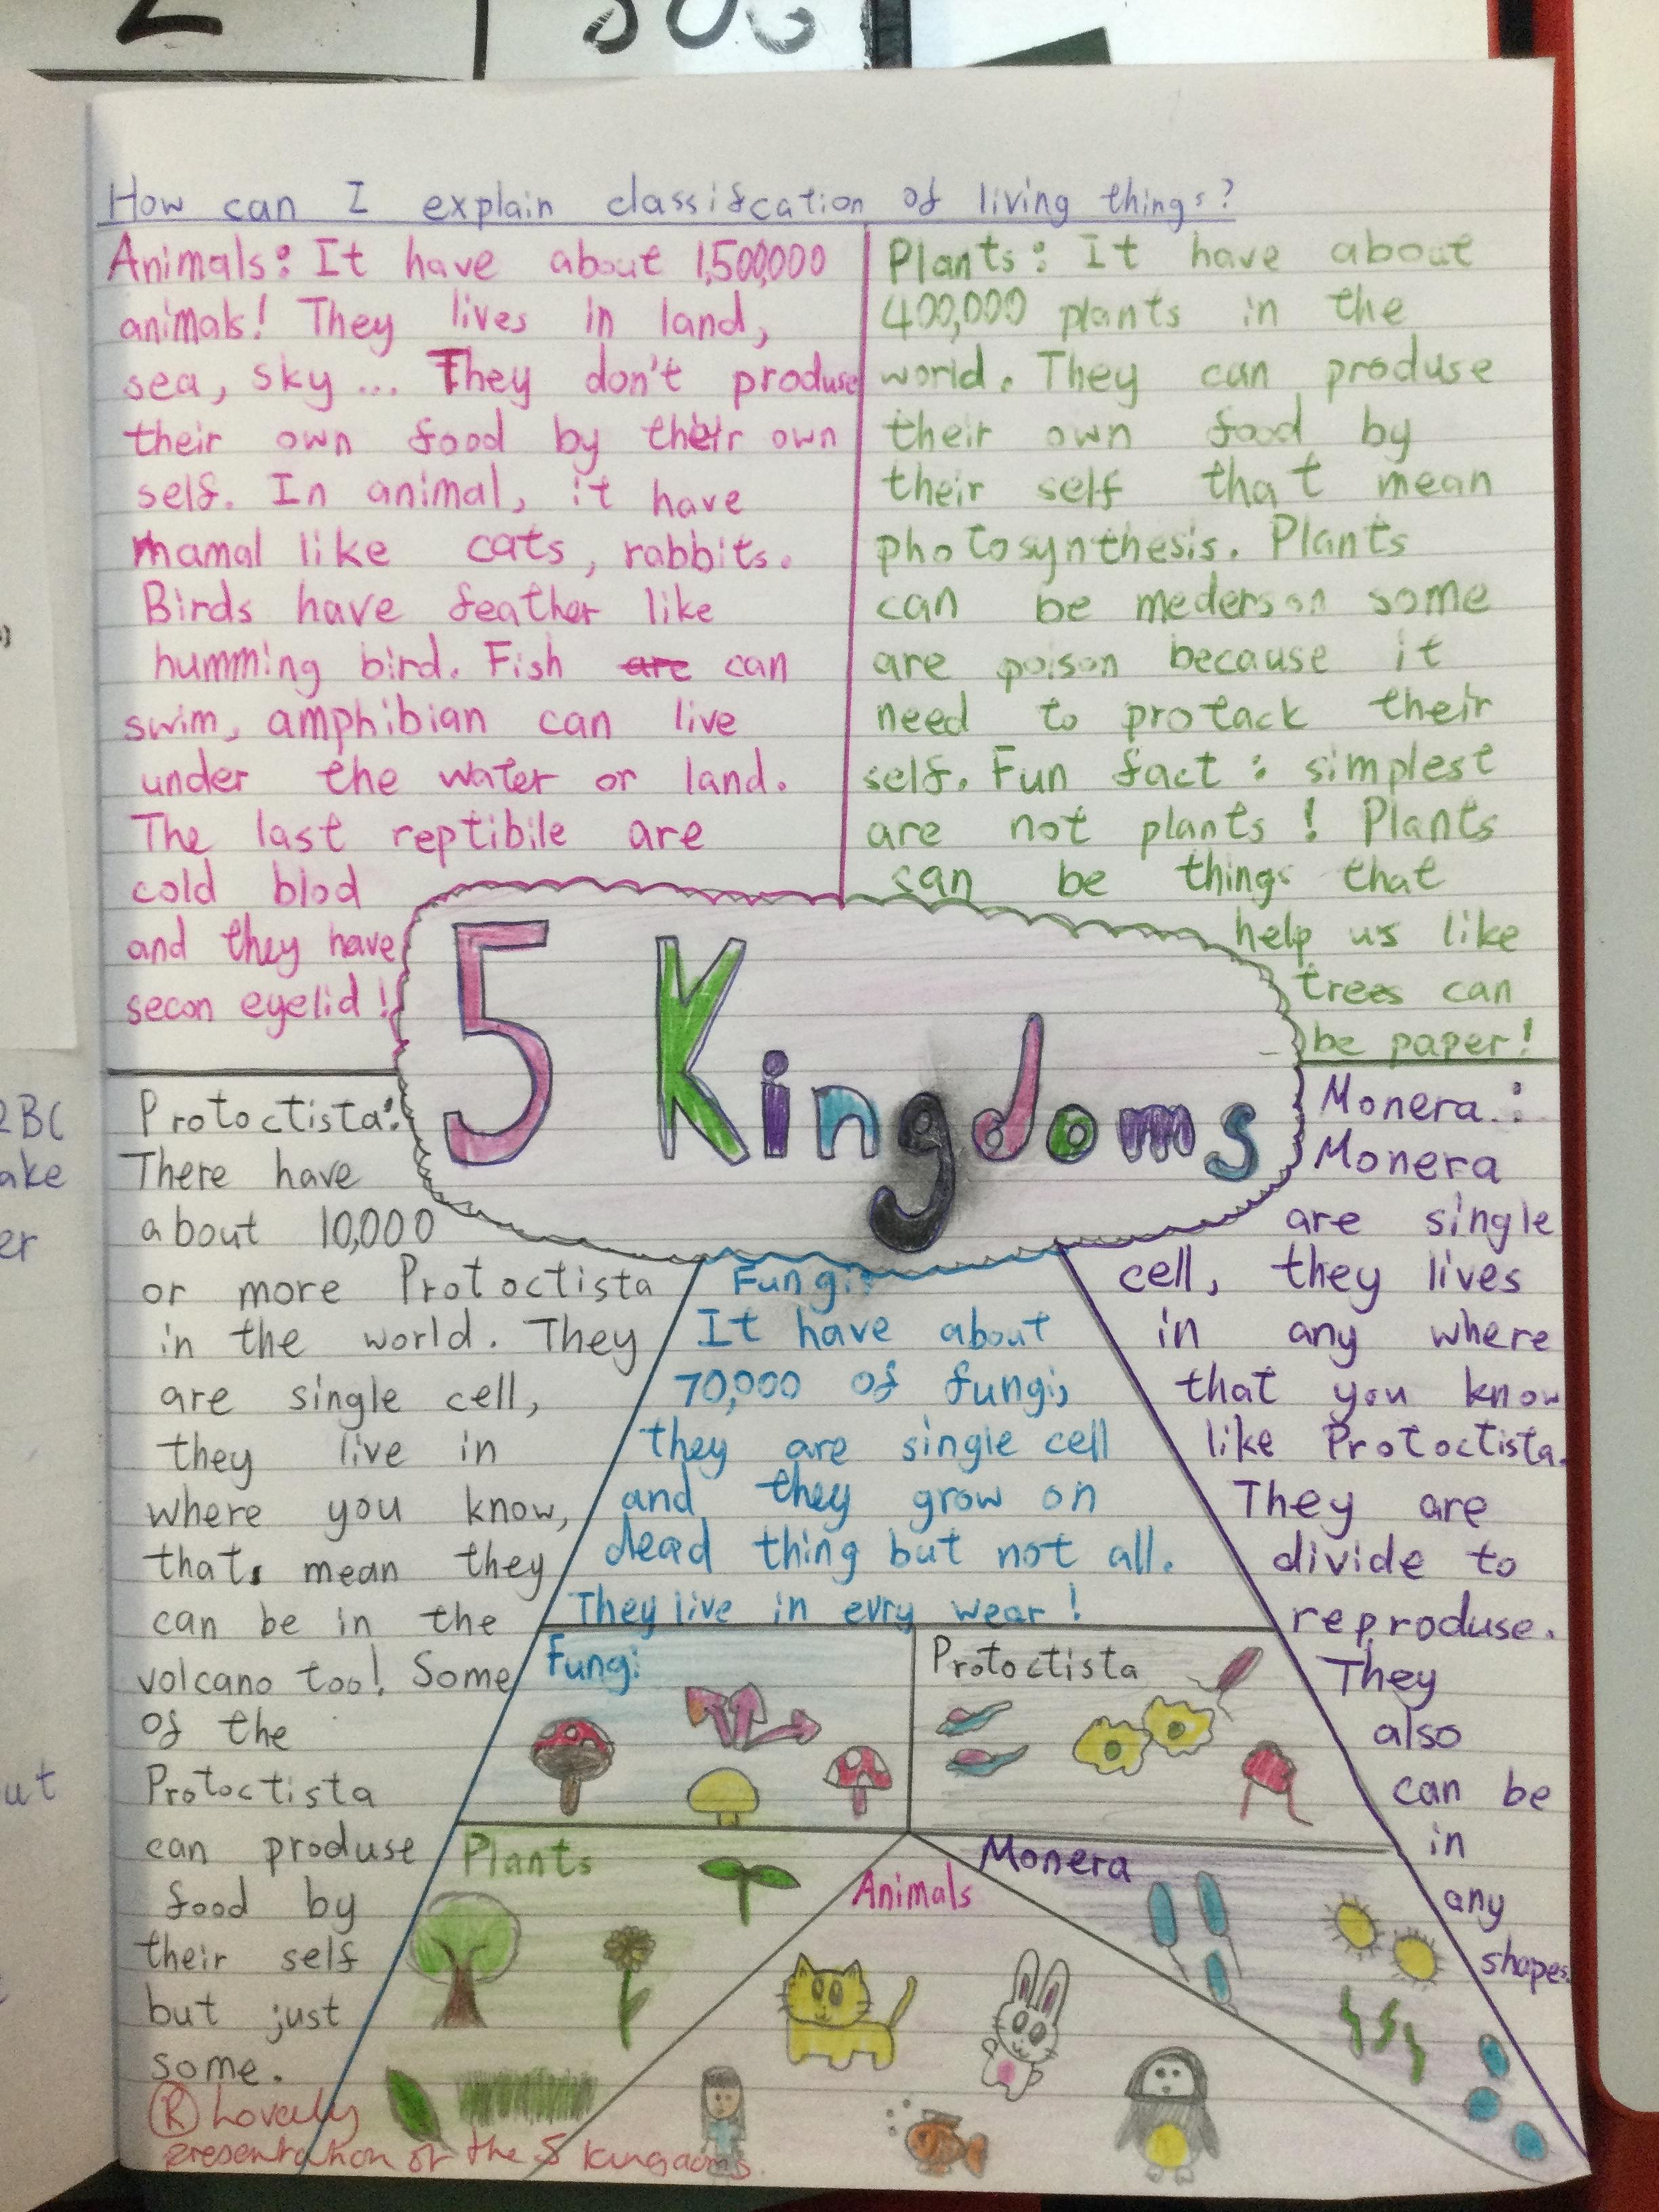 How can I explain classifcation of living things?
Animals: It have about 1,500,000
animals! They lives in land,
sea, sky... They don't produse
their own food by their own
self. In animal, it have
mamal like cats, rabbits.
Birds have feather like
humming bird. Fish are can
swim, amphibian can live
under the water or land.
The last reptibile are
cold blod
and they have
secon eyelid!
Plants: It have about
400,000 plants in the
world. They can produse
their own food by
their self that mean
photosynthesis. Plants
can be mederson some
are poison because it
need to protack their
self. Fun fact: simplest
are not plants! Plants
can be things that
help us like
trees can
be paper!
5 Kingdoms
Protoctista:
There have
about 10,000
or more Protoctista
in the world. They
are single cell,
they live in
where you know,
thats mean they
can be in the
volcano too! Some
of the
Protoctista
can produse
food by
their self
but just
some.
Fungi:
It have about
70,000 of fungi,
they are single cell
and they grow on
dead thing but not all.
They live in evry wear!
Monera:
Monera
are single
cell, they lives
in any where
that you know
like Protoctista.
They are
divide to
reproduse.
They
also
can be
in
any
shapes.
Fungi
Protoctista
Plants
Animals
Monera
R Lovely
presentation of the 5 kingdoms.
2BC
ake
er
ut